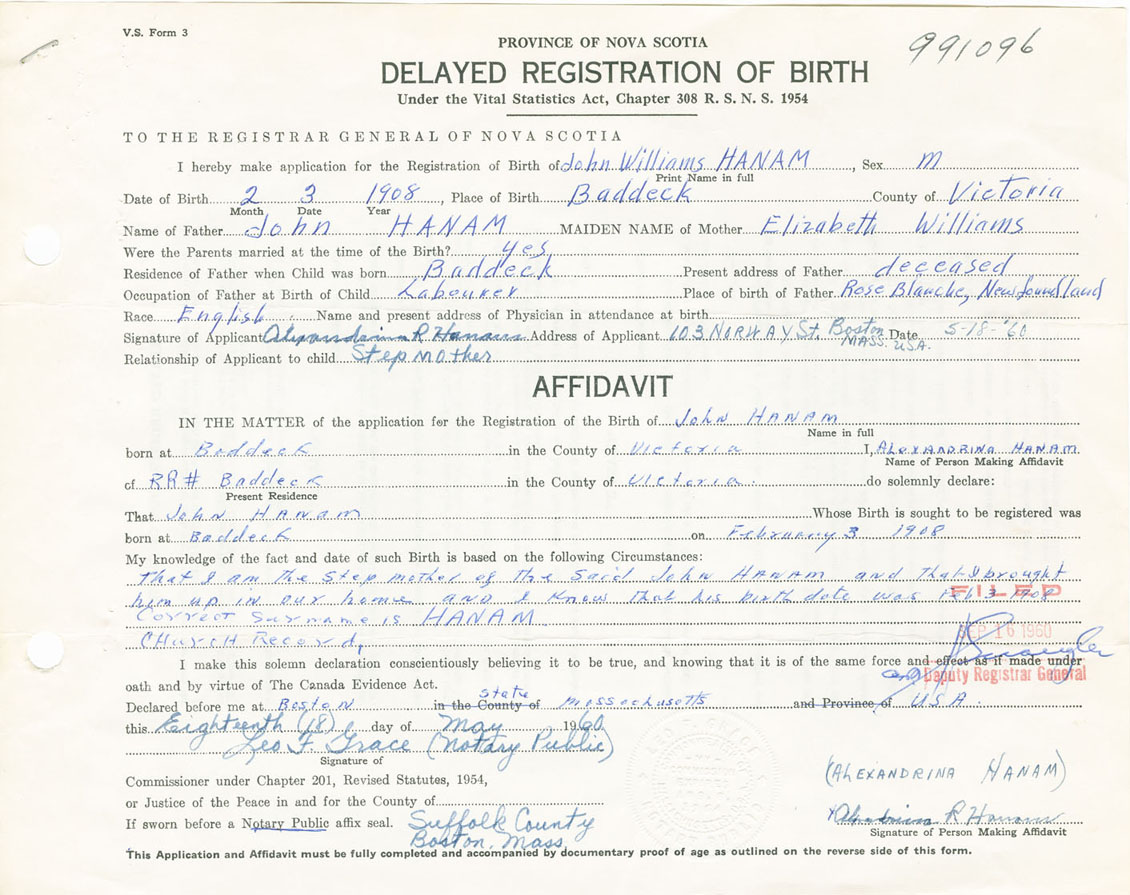 V.S. Form 3
991096
PROVINCE OF NOVA SCOTIA
DELAYED REGISTRATION OF BIRTH
Under the Vital Statistics Act, Chapter 308 R. S. N. S. 1954
TO THE REGISTRAR GENERAL OF NOVA SCOTIA
I hereby make application for the Registration of Birth of John Williams HANAM, Sex M
Print Name in full
Date of Birth 2 3 1908, Place of Birth Baddeck County of Victoria
Month Date Year
Name of Father John HANAM MAIDEN NAME of Mother Elizabeth Williams
Were the Parents married at the time of the Birth? yes
Residence of Father when Child was born Baddeck Present address of Father deceased
Occupation of Father at Birth of Child Labourer Place of birth of Father Rose Blanche, Newfoundland
Race English Name and present address of Physician in attendance at birth
Signature of Applicant Alexandrina R Hanam Address of Applicant 103 NORWAY St. Boston MASS. USA. Date 5-18-'60
Relationship of Applicant to child Step mother
AFFIDAVIT
IN THE MATTER of the application for the Registration of the Birth of John HANAM
Name in full
born at Baddeck in the County of Victoria I, ALEXANDRINA HANAM
Name of Person Making Affidavit
of RR# Baddeck in the County of Victoria. do solemnly declare:
Present Residence
That John HANAM Whose Birth is sought to be registered was
born at Baddeck on February 3 1908
My knowledge of the fact and date of such Birth is based on the following Circumstances:
That I am the Step mother of the Said John HANAM and that I brought
him up in our home and I know that his birth date was Feb 3 1908
FILED
Correct Surname is HANAM.
SEP 16 1960
CHurch Record,
I make this solemn declaration conscientiously believing it to be true, and knowing that it is of the same force and effect as if made under
Deputy Registrar General
oath and by virtue of The Canada Evidence Act.
Declared before me at Boston in the County of state Massachusetts and Province of USA.
this Eighteenth (18) day of May 1960
Leo F Grace (Notary Public)
Signature of
Commissioner under Chapter 201, Revised Statutes, 1954,
(ALEXANDRINA HANAM)
or Justice of the Peace in and for the County of
If sworn before a Notary Public affix seal. Suffolk County
Boston, Mass
x Alexandrina R Hanam
Signature of Person Making Affidavit
This Application and Affidavit must be fully completed and accompanied by documentary proof of age as outlined on the reverse side of this form.